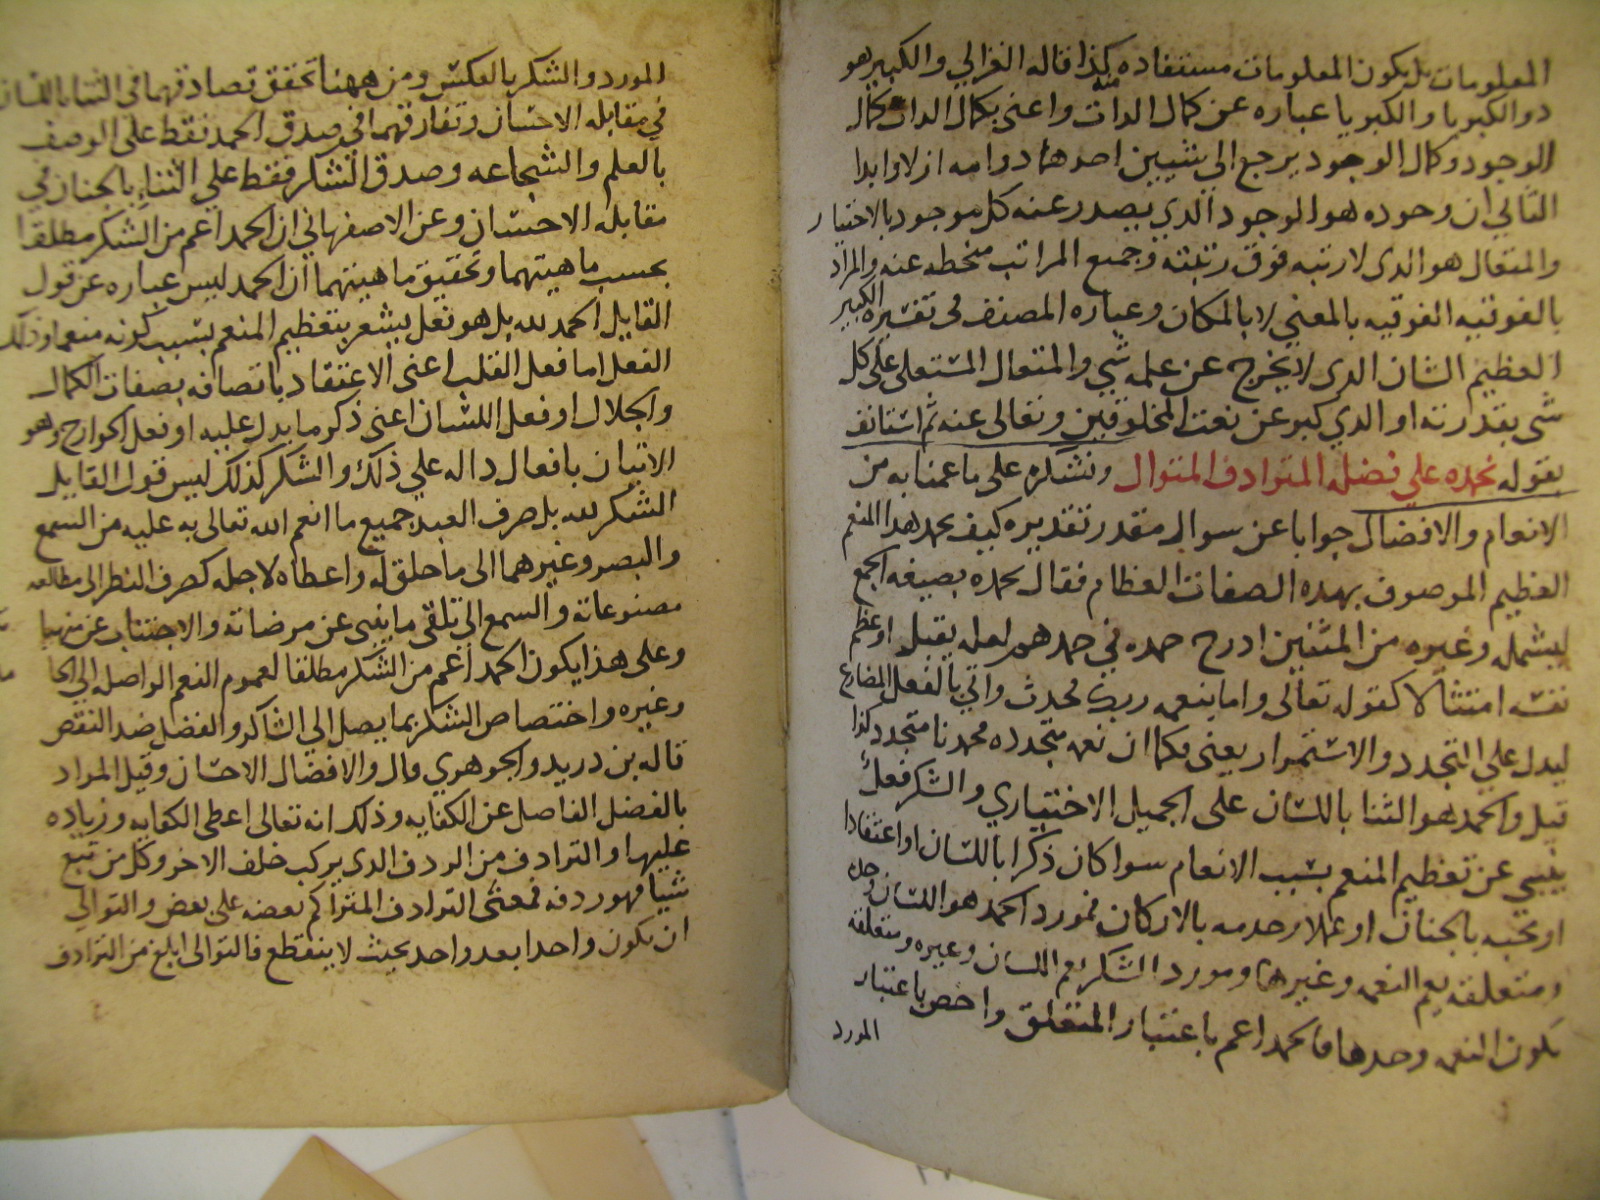 المعلومات بل يكون المعلومات مستفاده منه كذا قاله الغزالي والكبير هو
ذو الكبريا والكبريا عباره عن كمال الدات واعنى بكمال الدات كمال
الوجود وكمال الوجود يرجع الى شيين احدهما دوامه ازلا وابدا
الثاني ان وجوده هو الوجود الذي يصدر عنه كل موجود بالاختيار
والمتعال هو الدى لا رتبه فوق رتبته وجميع المراتب منحطه عنه والمراد
بالفوقيه الفوقيه بالمعني لا بالمكان وعباره المصنف فى تفسيره الكبير
العظيم الشان الدى لا يخرج عن علمه شي والمتعال المستعلى على كل
شى بقدرته او الدي كبر عن نعت المخلوقين وتعالى عنه ثم استانف
بقوله نحمده علي فضله المترادف المتوال ونشكره على ما عمنا به من
الانعام والافضال جوابا عن سوال مقدر تقديره كيف نحمد هدا المنعم
العظيم الموصوف بهده الصفات العظام فقال نحمده بصيغه الجمع
ليشمله وغيره من المثنين ادرج حمده في حمدهم لعله يقبل او عظم
نفسه امتثالا كقوله تعالى واما بنعمه ربك فحدث واتي بالفعل المضارع
ليدل علي التجدد والاستمرار يعنى فكما ان نعمه متجدده فحمدنا متجدد كذا
قيل والحمد هو الثنا باللسان على الجميل الاختياري والشكر فعل
ينبي عن تعظيم المنعم بسبب الانعام سوا كان ذكرا باللسان او اعتقادا
او محبه بالجنان او عملا وخدمه بالاركان فمورد الحمد هو اللسان وحده
ومتعلقه يعم النعمه وغيرها ومورد الشكر يعم اللسان وغيره ومتعلقه
يكون النعمه وحدها فالحمد اعم باعتبار المتعلق واخص باعتبار
المورد
المورد والشكر بالعكس ومن ههنا تحقق تصادقهما في الثنا باللسان
في مقابله الاحسان وتفارقهما في صدق الحمد فقط على الوصف
بالعلم والشجاعه وصدق الشكر فقط على الثناء بالجنان في
مقابله الاحسان وعن الاصفهاني ان الحمد اعم من الشكر مطلقا
بحسب ماهيتهما وتحقيق ماهيتهما ان الحمد ليس عباره عن قول
القايل الحمد لله بل هو فعل يشعر بتعظيم المنعم بسبب كونه منعما وذلك
الفعل اما فعل القلب اعنى الاعتقاد باتصافه بصفات الكمال
والجلال او فعل اللسان اعنى ذكر ما يدل عليه او فعل الجوارح وهو
الاتيان بافعال داله علي ذلك والشكر كذلك ليس قول القايل
الشكر لله بل صرف العبد جميع ما انعم الله تعالى به عليه من السمع
والبصر وغيرهما الى ما خلق له واعطاه لاجله كصرف النظر الى مطالعه
مصنوعاته والسمع الى تلقى ما ينبى عن مرضاته والاجتناب عن
وعلى هذا يكون الحمد اعم من الشكر مطلقا لعموم النعم الواصله الي
وغيره واختصاص الشكر بما يصل الي الشاكر والفضل ضد النقص
قاله بن دريد والجوهري قال والافضال الاحسان وقيل المراد
بالفضل الفاصل عن الكفايه وذلك انه تعالى اعطى الكفايه وزياده
عليها والترادف من الردف الدى يركب خلف الاخر وكل من تبع
شيا فهو ردفه فمعنى الترادف المتراكم بعضه على بعض والتوالي
ان يكون واحدا بعد واحد بحيث لا ينقطع فالتوالى ابلغ من الترادف